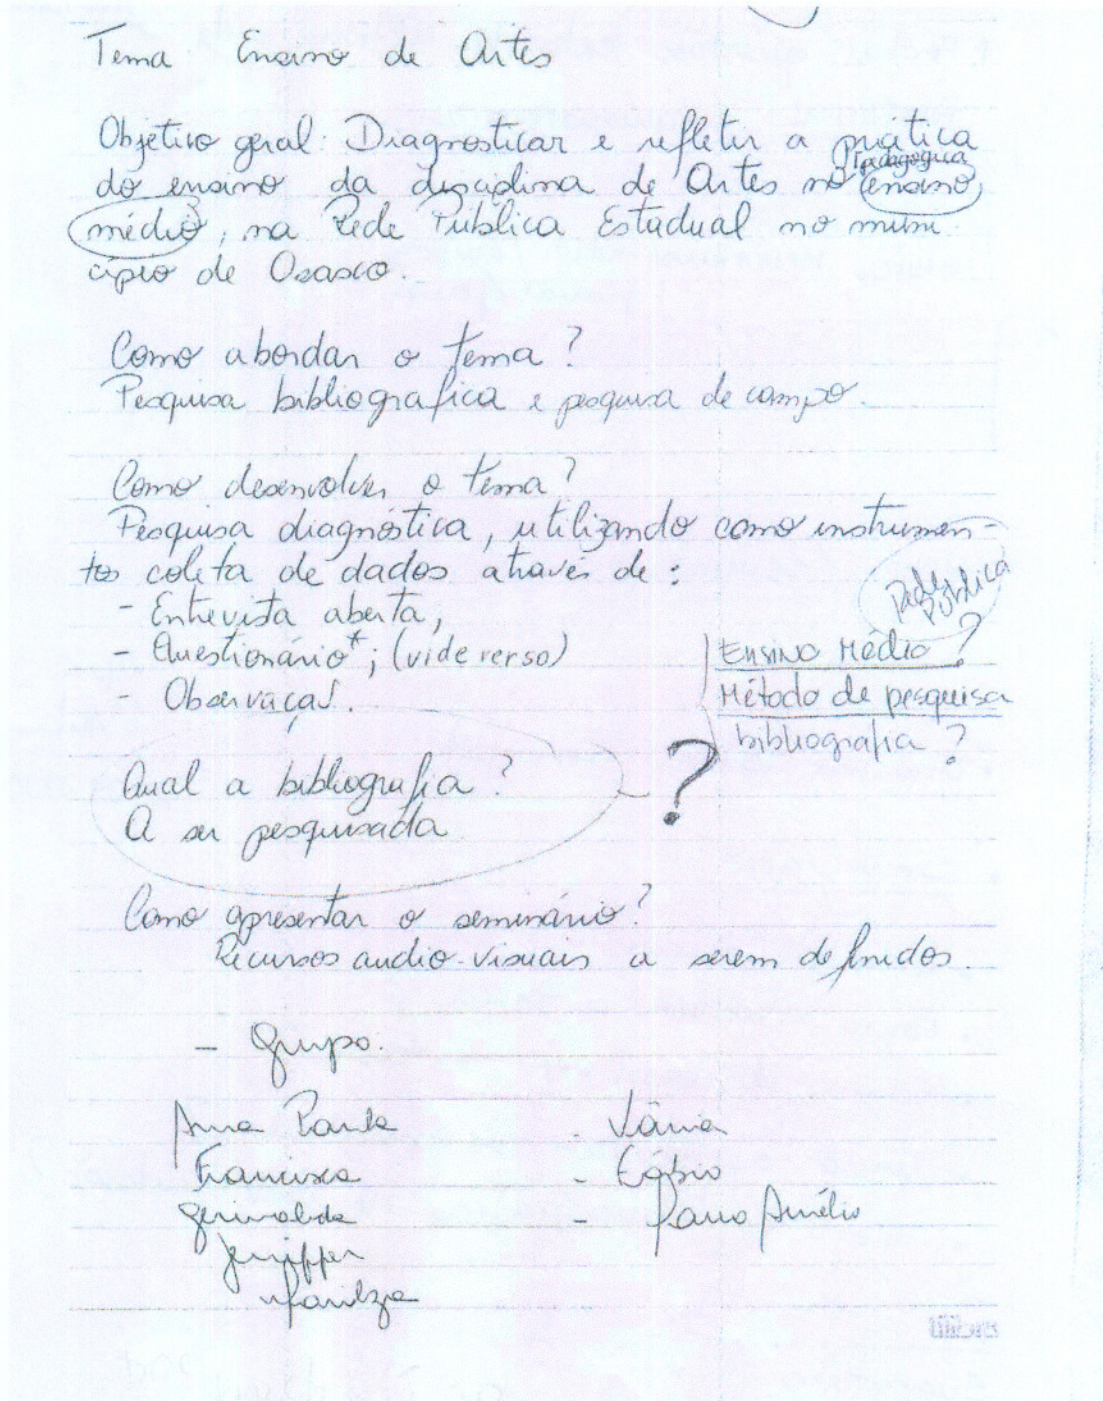 Tema Ensino de Artes
Objetivo geral: Diagnosticar e refletir a prática
Pedagógica
do ensino da disciplina de Artes no ensino
médio, na Rede Pública Estadual no muni-
cípio de Osasco.
Como abordar o tema?
Pesquisa bibliografica e pesquisa de campo.
Como desenvolver o tema?
Pesquisa diagnóstica, utilizando como instrumen-
tos coleta de dados através de:
- Entrevista aberta,
- Questionário*; (vide verso)
- Observação.
Rede Pública
Ensino Médio?
Método de pesquisa
bibliografia?
Qual a bibliografia?
A ser pesquisada
?
Como apresentar o seminário?
Recursos audio-visuais a serem definidos.
- Grupo:
Ana Paula - Vânia
Francisca - Fábio
Gerivalda - Marco Aurélio
Jeniffer
Marilza
tilibra